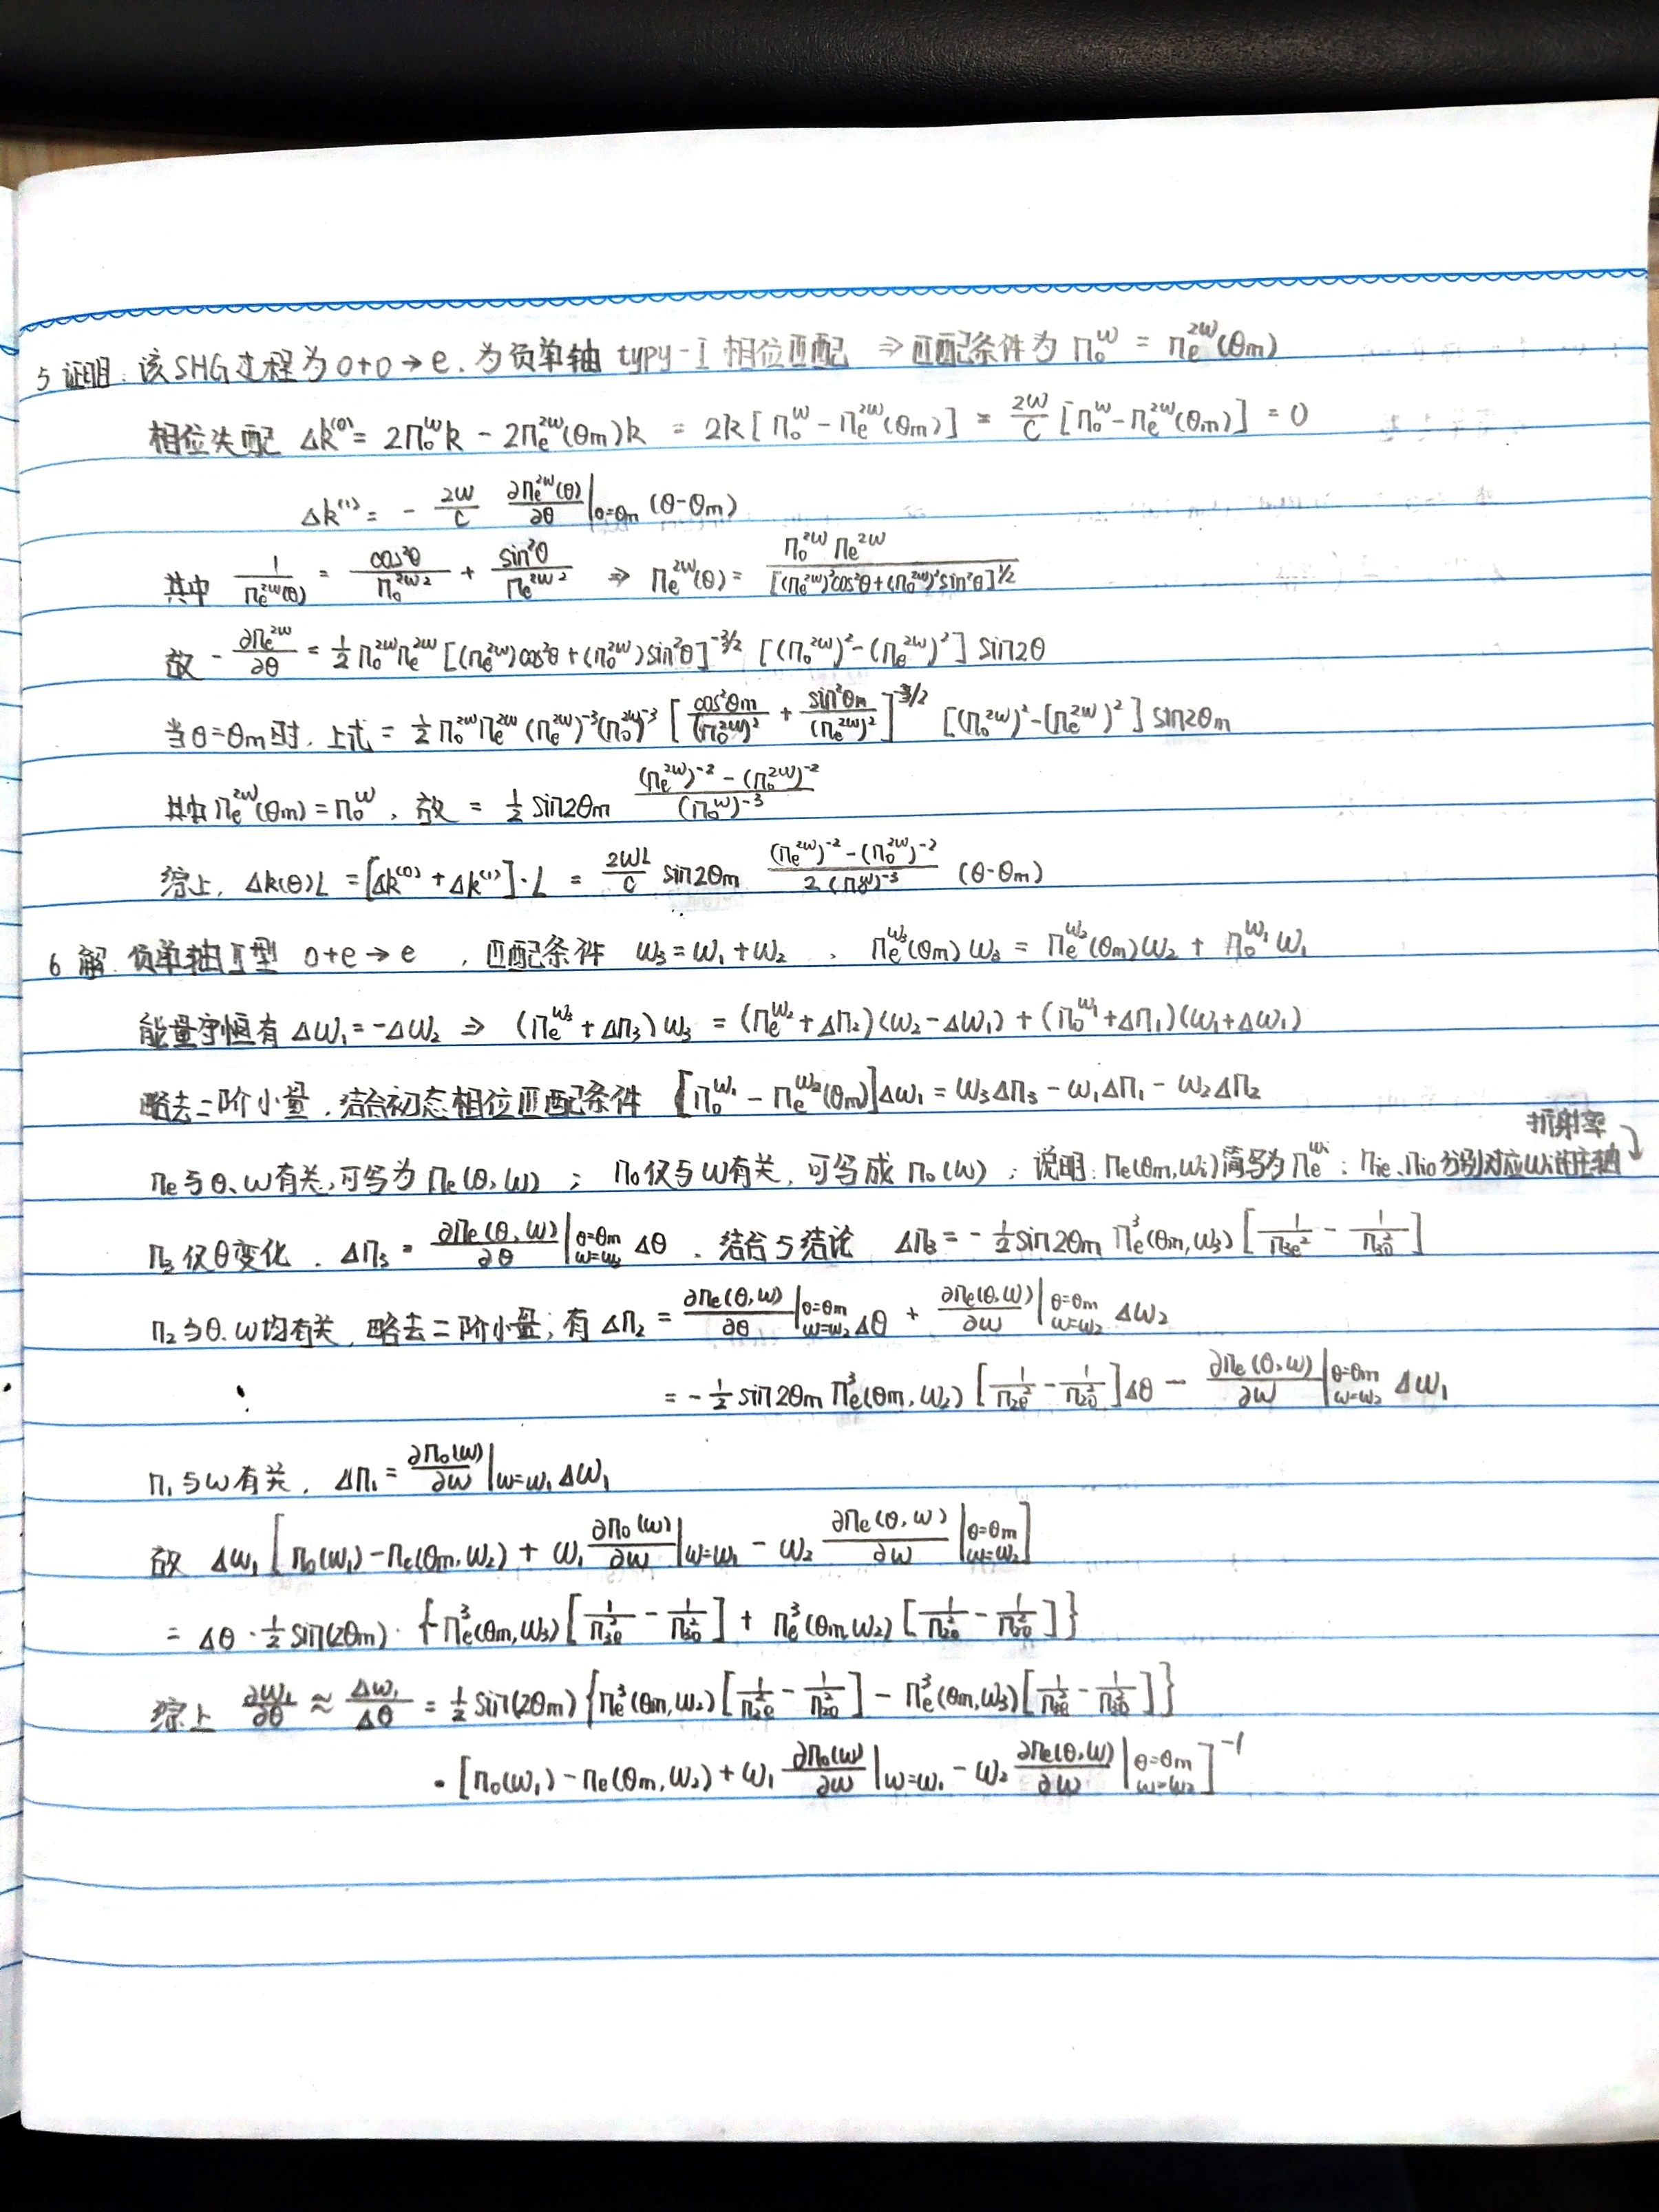 5 证明: 该SHG过程为 o+o→e. 为负单轴 typy-I 相位匹配 ⇒ 匹配条件为 n_o^ω = n_e^{2ω}(θm)
相位失配 Δk^{(0)} = 2n_o^ω k - 2n_e^{2ω}(θm)k = 2k[n_o^ω - n_e^{2ω}(θm)] = \frac{2ω}{c}[n_o^ω - n_e^{2ω}(θm)] = 0
Δk^{(1)} = - \frac{2ω}{c} \frac{∂n_e^{2ω}(θ)}{∂θ}|_{θ=θm} (θ-θm)
其中 \frac{1}{n_e^{2ω}(θ)} = \frac{cos²θ}{n_o^{2ω 2}} + \frac{sin²θ}{n_e^{2ω 2}} ⇒ n_e^{2ω}(θ) = \frac{n_o^{2ω} n_e^{2ω}}{[(n_e^{2ω})²cos²θ+(n_o^{2ω})²sin²θ]^{1/2}}
故 -\frac{∂n_e^{2ω}}{∂θ} = \frac{1}{2} n_o^{2ω} n_e^{2ω} [(n_e^{2ω})cos²θ+(n_o^{2ω})sin²θ]^{-3/2} [(n_o^{2ω})²-(n_e^{2ω})²] sin2θ
当θ=θm时, 上式 = \frac{1}{2} n_o^{2ω} n_e^{2ω} (n_e^{2ω})^{-3}(n_o^{2ω})^{-3} [\frac{cos²θm}{(n_o^{2ω})²} + \frac{sin²θm}{(n_e^{2ω})²}]^{-3/2} [(n_o^{2ω})²-(n_e^{2ω})²] sin2θm
其中 n_e^{2ω}(θm) = n_o^ω, 故 = \frac{1}{2} sin2θm \frac{(n_e^{2ω})^{-2} - (n_o^{2ω})^{-2}}{(n_o^ω)^{-3}}
综上, Δk(θ)L = [Δk^{(0)} + Δk^{(1)}]·L = \frac{2ωL}{c} sin2θm \frac{(n_e^{2ω})^{-2} - (n_o^{2ω})^{-2}}{2(n_o^ω)^{-3}} (θ-θm)
6 解. 负单轴II型 o+e→e , 匹配条件 ω3=ω1+ω2 , n_e^{ω3}(θm)ω3 = n_e^{ω2}(θm)ω2 + n_o^{ω1}ω1
能量守恒有 Δω1=-Δω2 ⇒ (n_e^{ω3}+Δn3)ω3 = (n_e^{ω2}+Δn2)(ω2-Δω1)+(n_o^{ω1}+Δn1)(ω1+Δω1)
略去二阶小量, 结合初态相位匹配条件 [n_o^{ω1} - n_e^{ω2}(θm)]Δω1 = ω3Δn3 - ω1Δn1 - ω2Δn2
折射率
ne与θ、ω有关, 可写为 ne(θ,ω) ; no仅与ω有关, 可写成 no(ω) ; 说明: ne(θm,ωi)简写为 n_e^{ωi} ; nie、nio 分别对应ωi的主轴
n3仅θ变化, Δn3 = \frac{∂ne(θ,ω)}{∂θ}|_{θ=θm ω=ω3} Δθ , 结合5结论 Δn3 = -\frac{1}{2}sin2θm n_e^3(θm,ω3) [\frac{1}{n_{3e}^2} - \frac{1}{n_{3o}^2}]
n2与θ.ω均有关, 略去二阶小量; 有 Δn2 = \frac{∂ne(θ,ω)}{∂θ}|_{θ=θm ω=ω2} Δθ + \frac{∂ne(θ,ω)}{∂ω}|_{θ=θm ω=ω2} Δω2
= -\frac{1}{2} sin2θm n_e^3(θm,ω2) [\frac{1}{n_{2e}^2} - \frac{1}{n_{2o}^2}]Δθ - \frac{∂ne(θ,ω)}{∂ω}|_{θ=θm ω=ω2} Δω1
n1与ω有关, Δn1 = \frac{∂no(ω)}{∂ω}|_{ω=ω1} Δω1
故 Δω1 [no(ω1) - ne(θm,ω2) + ω1 \frac{∂no(ω)}{∂ω}|_{ω=ω1} - ω2 \frac{∂ne(θ,ω)}{∂ω}|_{θ=θm ω=ω2}]
= Δθ · \frac{1}{2} sin(2θm) · {-n_e^3(θm,ω3) [\frac{1}{n_{3e}^2} - \frac{1}{n_{3o}^2}] + n_e^3(θm,ω2) [\frac{1}{n_{2e}^2} - \frac{1}{n_{2o}^2}]}
综上 \frac{∂ω1}{∂θ} ≈ \frac{Δω1}{Δθ} = \frac{1}{2} sin(2θm) {n_e^3(θm,ω2) [\frac{1}{n_{2e}^2} - \frac{1}{n_{2o}^2}] - n_e^3(θm,ω3) [\frac{1}{n_{3e}^2} - \frac{1}{n_{3o}^2}]}
· [no(ω1) - ne(θm,ω2) + ω1 \frac{∂no(ω)}{∂ω}|_{ω=ω1} - ω2 \frac{∂ne(θ,ω)}{∂ω}|_{θ=θm ω=ω2}]^{-1}